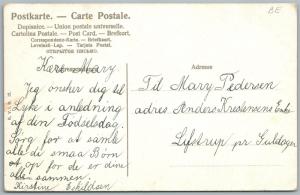 BE
Postkarte. — Carte Postale.
Dopisnice. — Union postale universelle.
Cartolina Postale. — Post Card. — Brefkort.
Correspondenz-Karte. — Briefkaart.
Levelező-Lap. — Tarjeta Postal.
ОТКРЫТОЕ ПИСЬМО.
Adressen
Kære Mary
Jeg ønsker dig til
Lykke i anledning
af den Fødselsdag.
Sørg for at samle
alle di smaa Børn
op for de er dine
alle sammen.
Kirstine Eskildsen
Til Mary Pedersen
adres Anders Kristensens Enke
Lifstrup pr